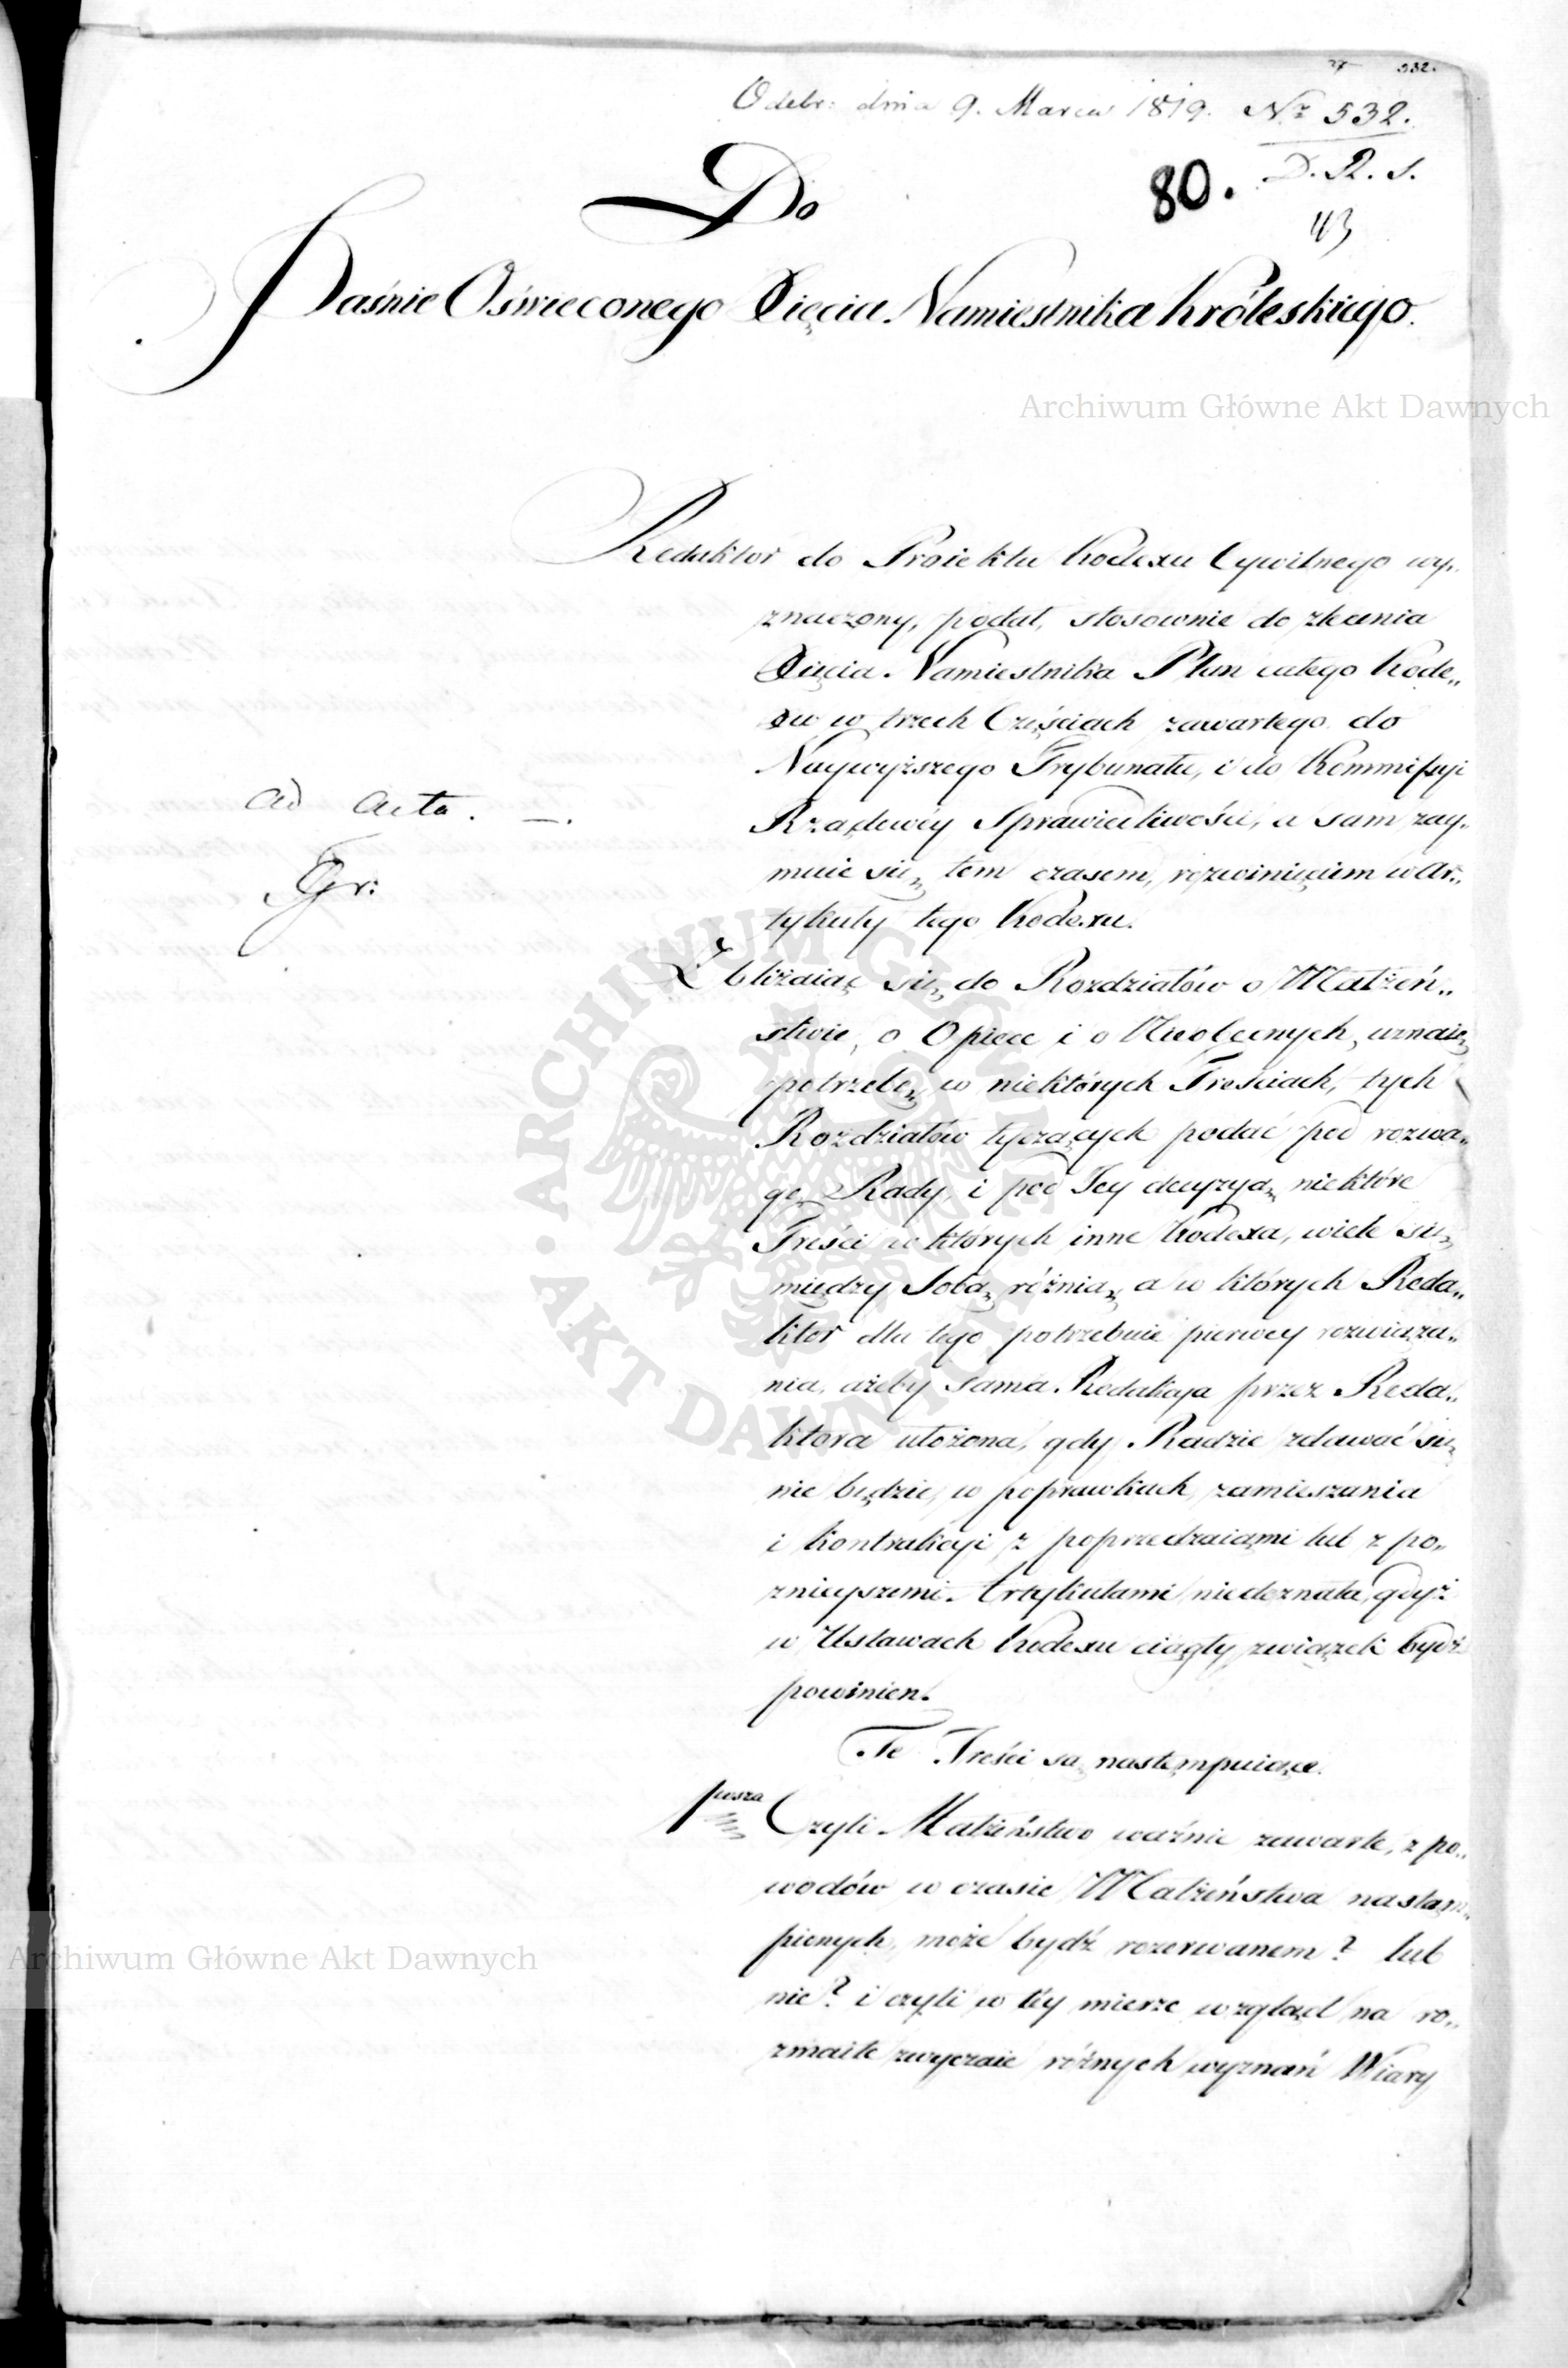 27 532.
Odebr: dnia 9. Marca 1819. Nr 532.
D. R. S.
80.
43
Do
Jaśnie Oświeconego Xięcia Namiestnika Króleskiego.
Archiwum Główne Akt Dawnych
Redaktor do Proiektu Kodexu Cywilnego wy„
znaczony, podał, stosownie do zlecenia
Xięcia Namiestnika Plan całego Kode„
xu w trzech Częściach zawartego do
Naywyższego Trybunału, i do Kommissyi
Rządowéy Sprawiedliwości, a sam zay„
muie się tem czasem, rozwinięciem w Ar„
tykuły tego Kodexu.
ad acta. —.
Gr:
Zbliżaiąc się do Rozdziałów o Małżeń„
stwie, o Opiece i o Nieobecnych, uznaię
potrzebę w niektórych Treściach, tych
Rozdziałów tyczących podać pod rozwa„
gę Rady, i pod Jey decyzyą niektóre
Treści w których inne Kodexa, wiele się
między sobą różnią, a w których Reda„
ktor dla tego potrzebuie pierwey rozwiąza„
nia, ażeby sama Redakcya przez Reda„
ktora ułożona, gdy Radzie zdawać się
nie będzie, w poprawkach zamieszania
i kontrakcyi z poprzedzaiącmi lub z po„
znieyszemi Artykułami niedoznała, gdyż
w Ustawach Kodexu ciągły związek bydź
powinien.
Te Treści są nastempuiące.
1wsza Czyli Małżeństwo ważnie zawarte, z po„
wodów w czasie Małżeństwa nastąm„
pionych, może bydź rozerwanem? lub
nie? i czyli w téy mierze wzgląd na ro„
zmaite zwyczaie różnych wyznań Wiary
Archiwum Główne Akt Dawnych
ARCHIWUM GŁÓWNE AKT DAWNYCH